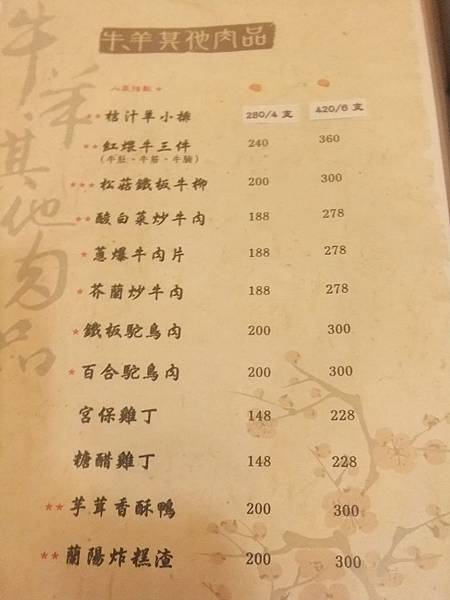 牛、羊其他肉品
牛、羊、其他肉品
人氣指數 ★
★★桔汁羊小排 280/4 支 420/6 支
★★紅煨牛三件 240 360
(牛肚、牛筋、牛腩)
★★★松菇鐵板牛柳 200 300
★★酸白菜炒牛肉 188 278
★蔥爆牛肉片 188 278
★芥蘭炒牛肉 188 278
★鐵板駝鳥肉 200 300
★百合駝鳥肉 200 300
宮保雞丁 148 228
糖醋雞丁 148 228
★★芋茸香酥鴨 200 300
★★蘭陽炸糕渣 200 300